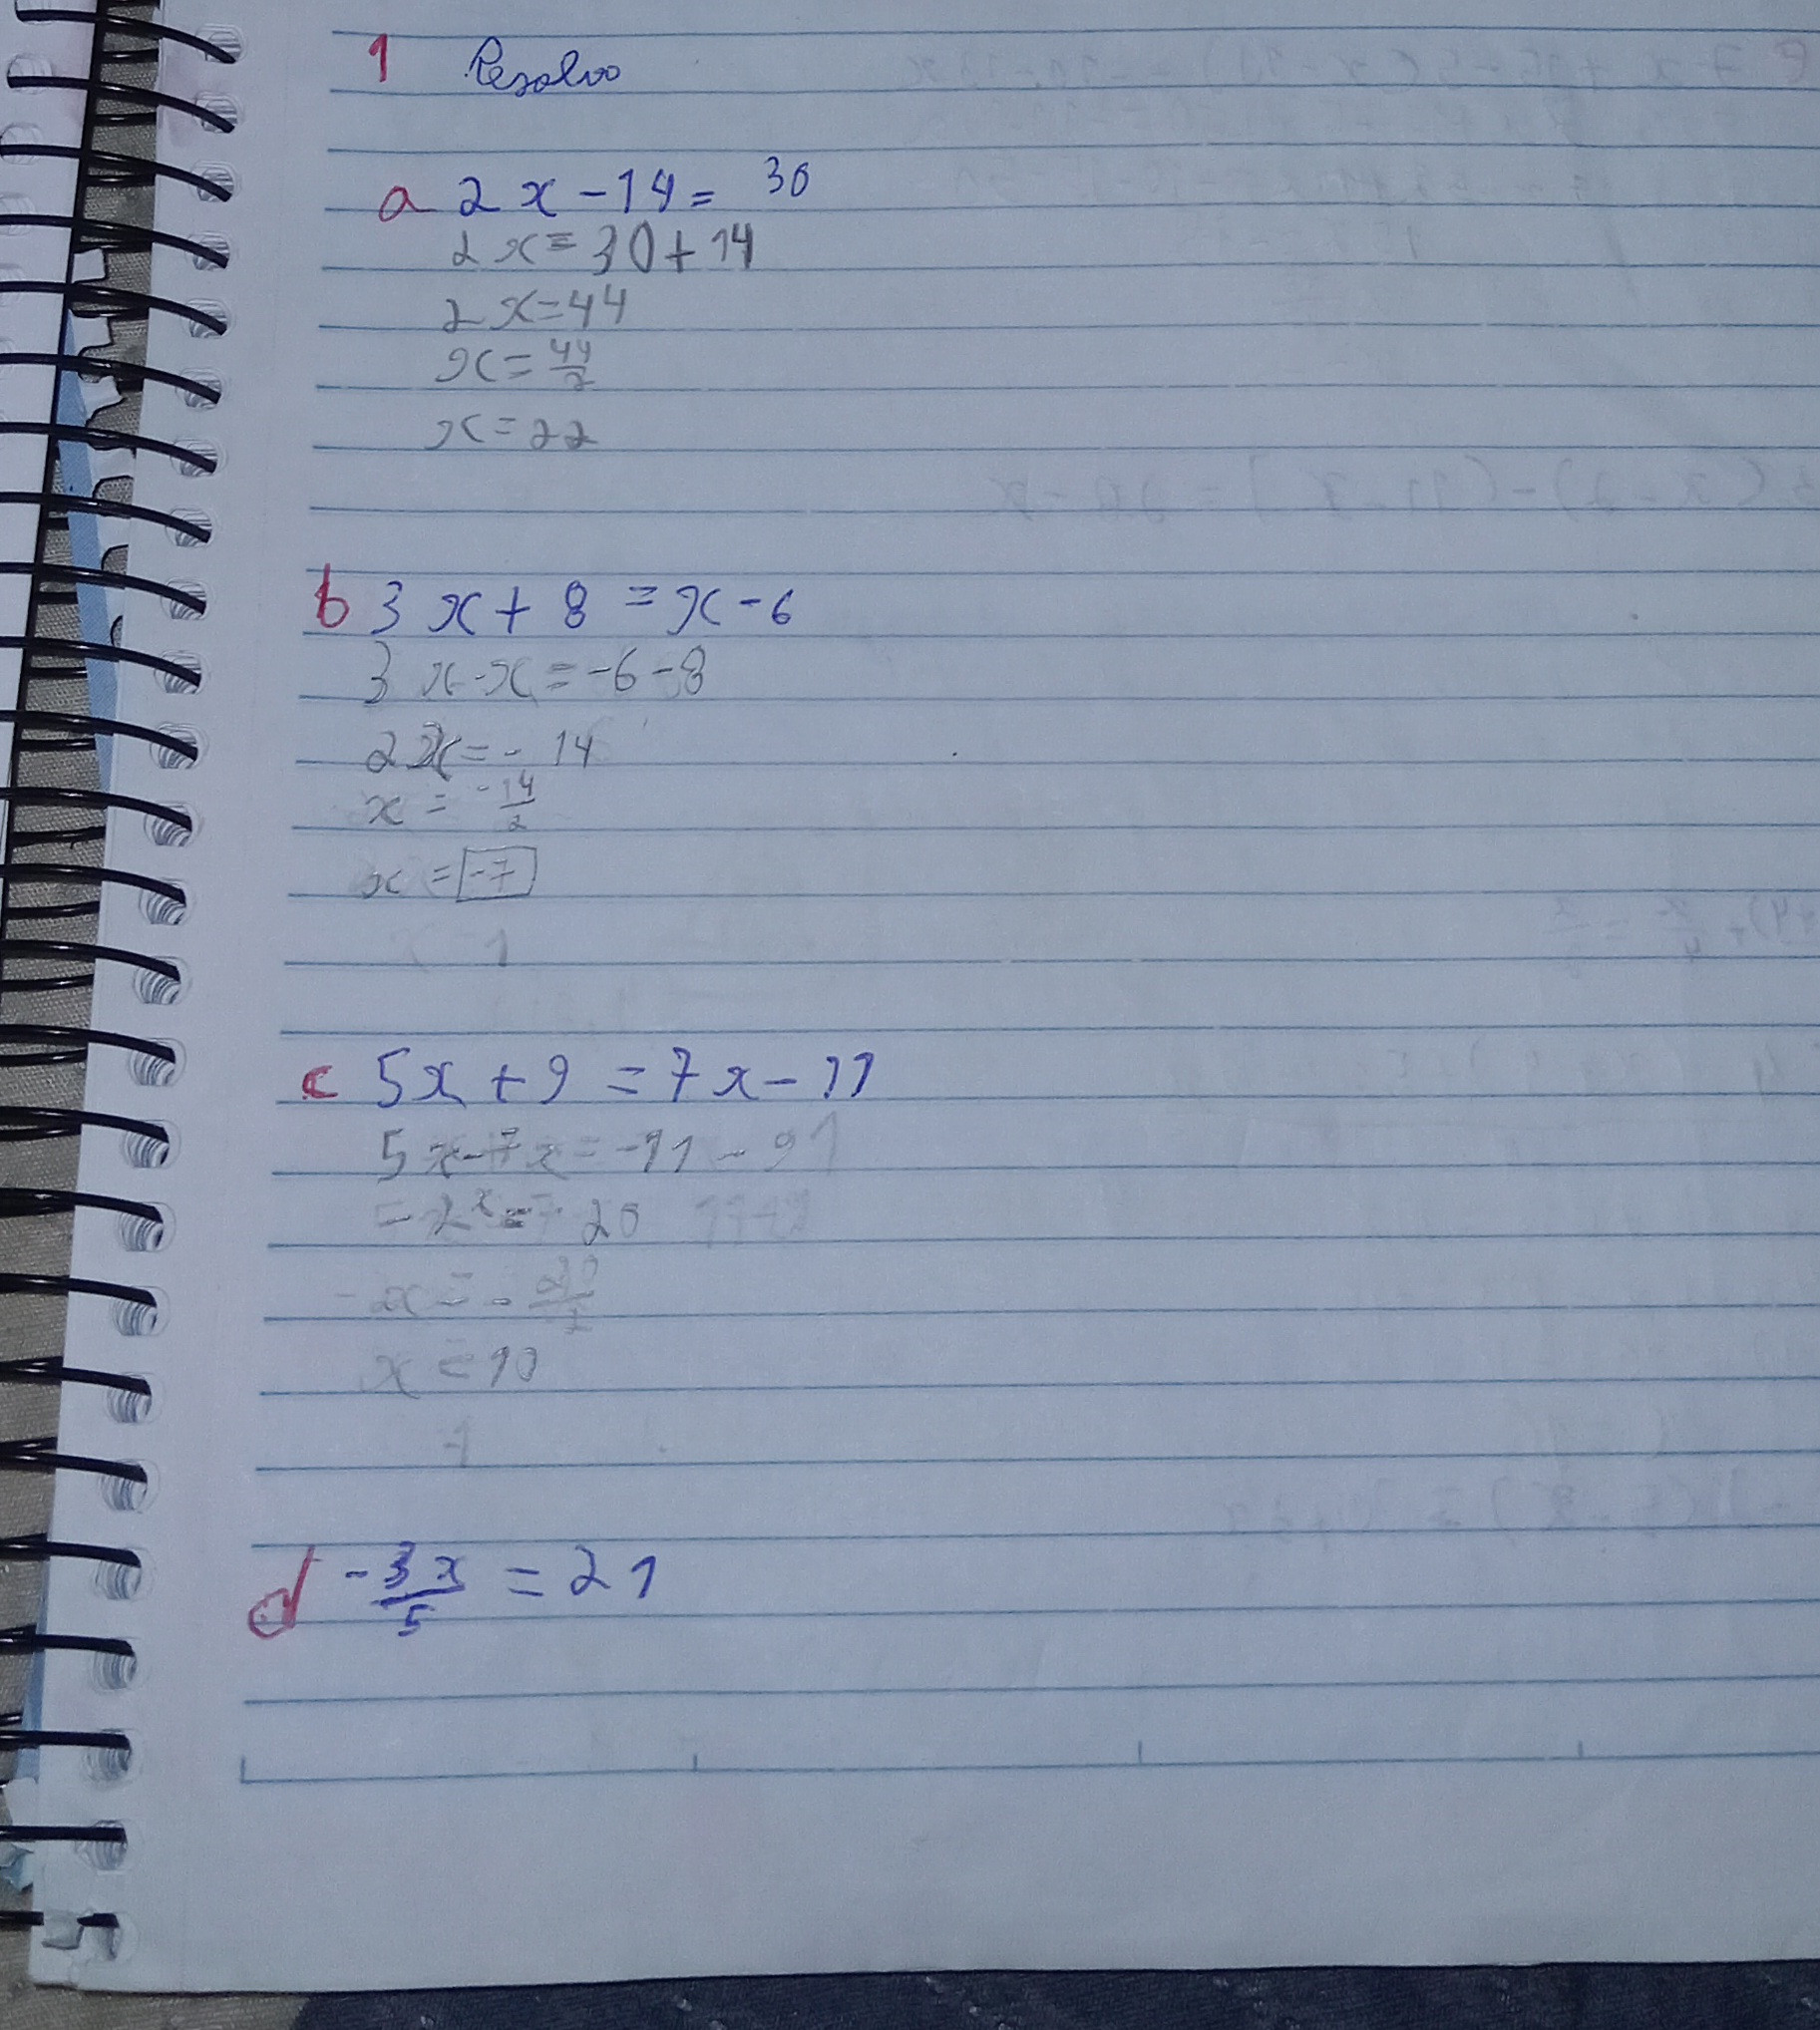 1 Resolva
a 2x - 14 = 30
2x = 30 + 14
2x = 44
x = 44/2
x = 22
b 3x + 8 = x - 6
3x - x = -6 - 8
2x = - 14
x = -14/2
x = -7
c 5x + 9 = 7x - 11
5x - 7x = -11 - 9
- 2x = - 20
x = 10
d -3x/5 = 21